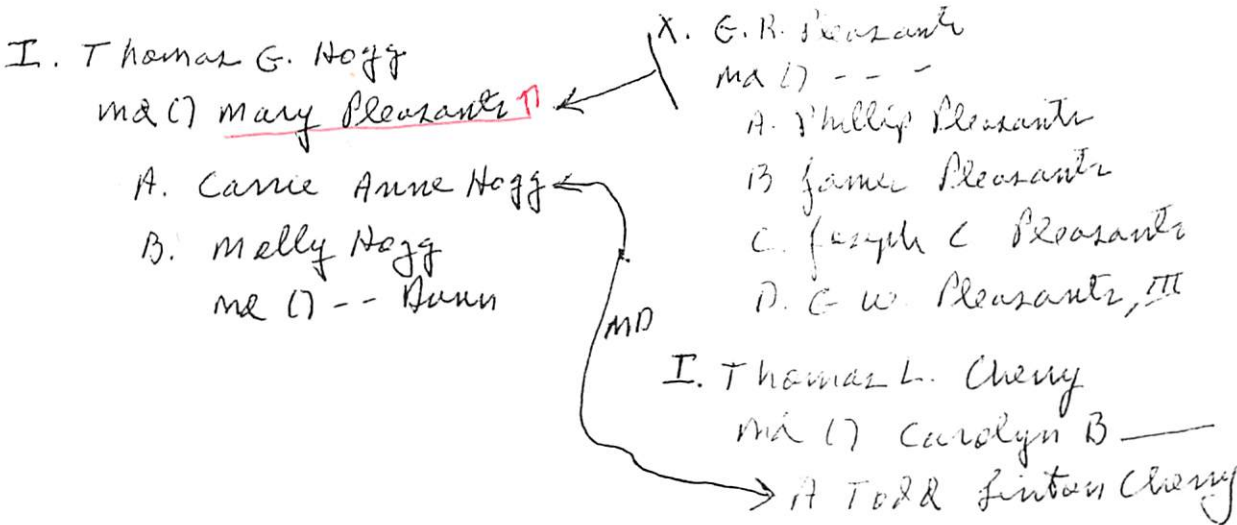 I. Thomas G. Hogg
md () Mary Pleasants
A. Carrie Anne Hogg
B. Molly Hogg
md () -- Dunn
X. G.R. Pleasants
md () - - -
A. Phillip Pleasants
B James Pleasants
C. Joseph C Pleasants
D. G W. Pleasants, III
MD
I. Thomas L. Cherry
md () Carolyn B —
A Todd Linton Cherry